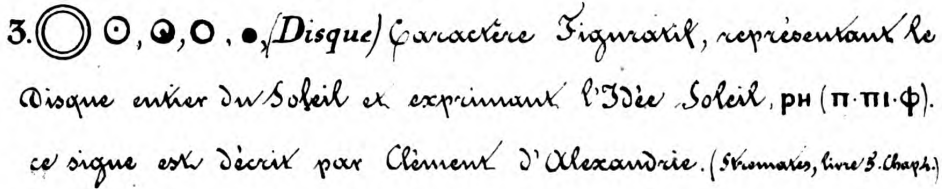 3. ☉, , , . ●, (Disque) Caractère Figuratif, représentant le
Disque entier du Soleil et exprimant l'Idée Soleil, ⲣⲏ (ⲡ·ⲡⲓ·ⲫ).
ce signe est décrit par Clément d'Alexandrie. (Stromates, livre 5. Chap.4.)